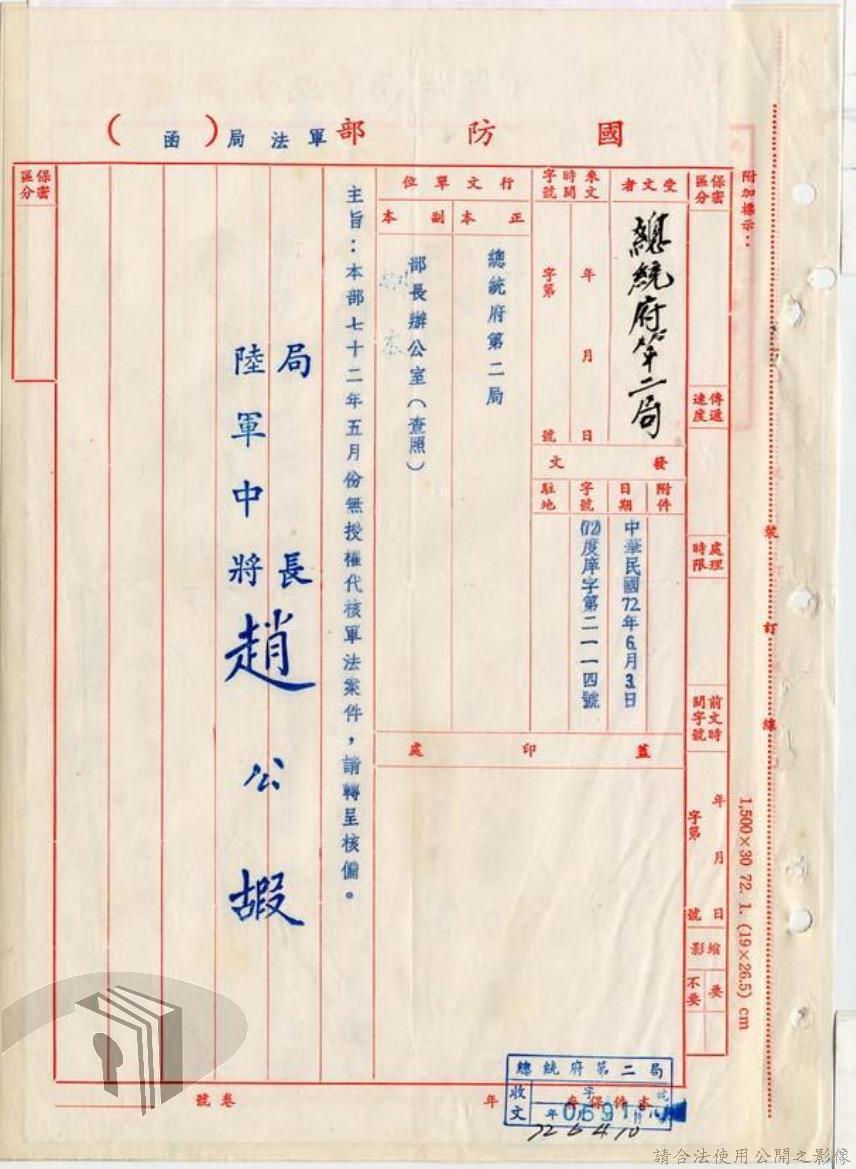 國防部軍法局（函）
附加標示：
保密區分
傳遞速度
處理時限
前文時間字號
年月日
字第號
縮影
要
不要
受文者
總統府第二局
來文
時間
字號
年月日
字第號
發文
附件
日期
中華民國72年6月3日
字號
(72)度庠字第二一一四號
駐地
行文單位
正本
總統府第二局
副本
部長辦公室（查照）
蓋印處
主旨：本部七十二年五月份無授權代核軍法案件，請轉呈核備。
局長
陸軍中將趙公嘏
保密區分
裝訂線
1,500×30 72.1.(19×26.5)cm
總統府第二局
收文
年
72 6 4
本件保存
年
卷號
請合法使用公開之影像